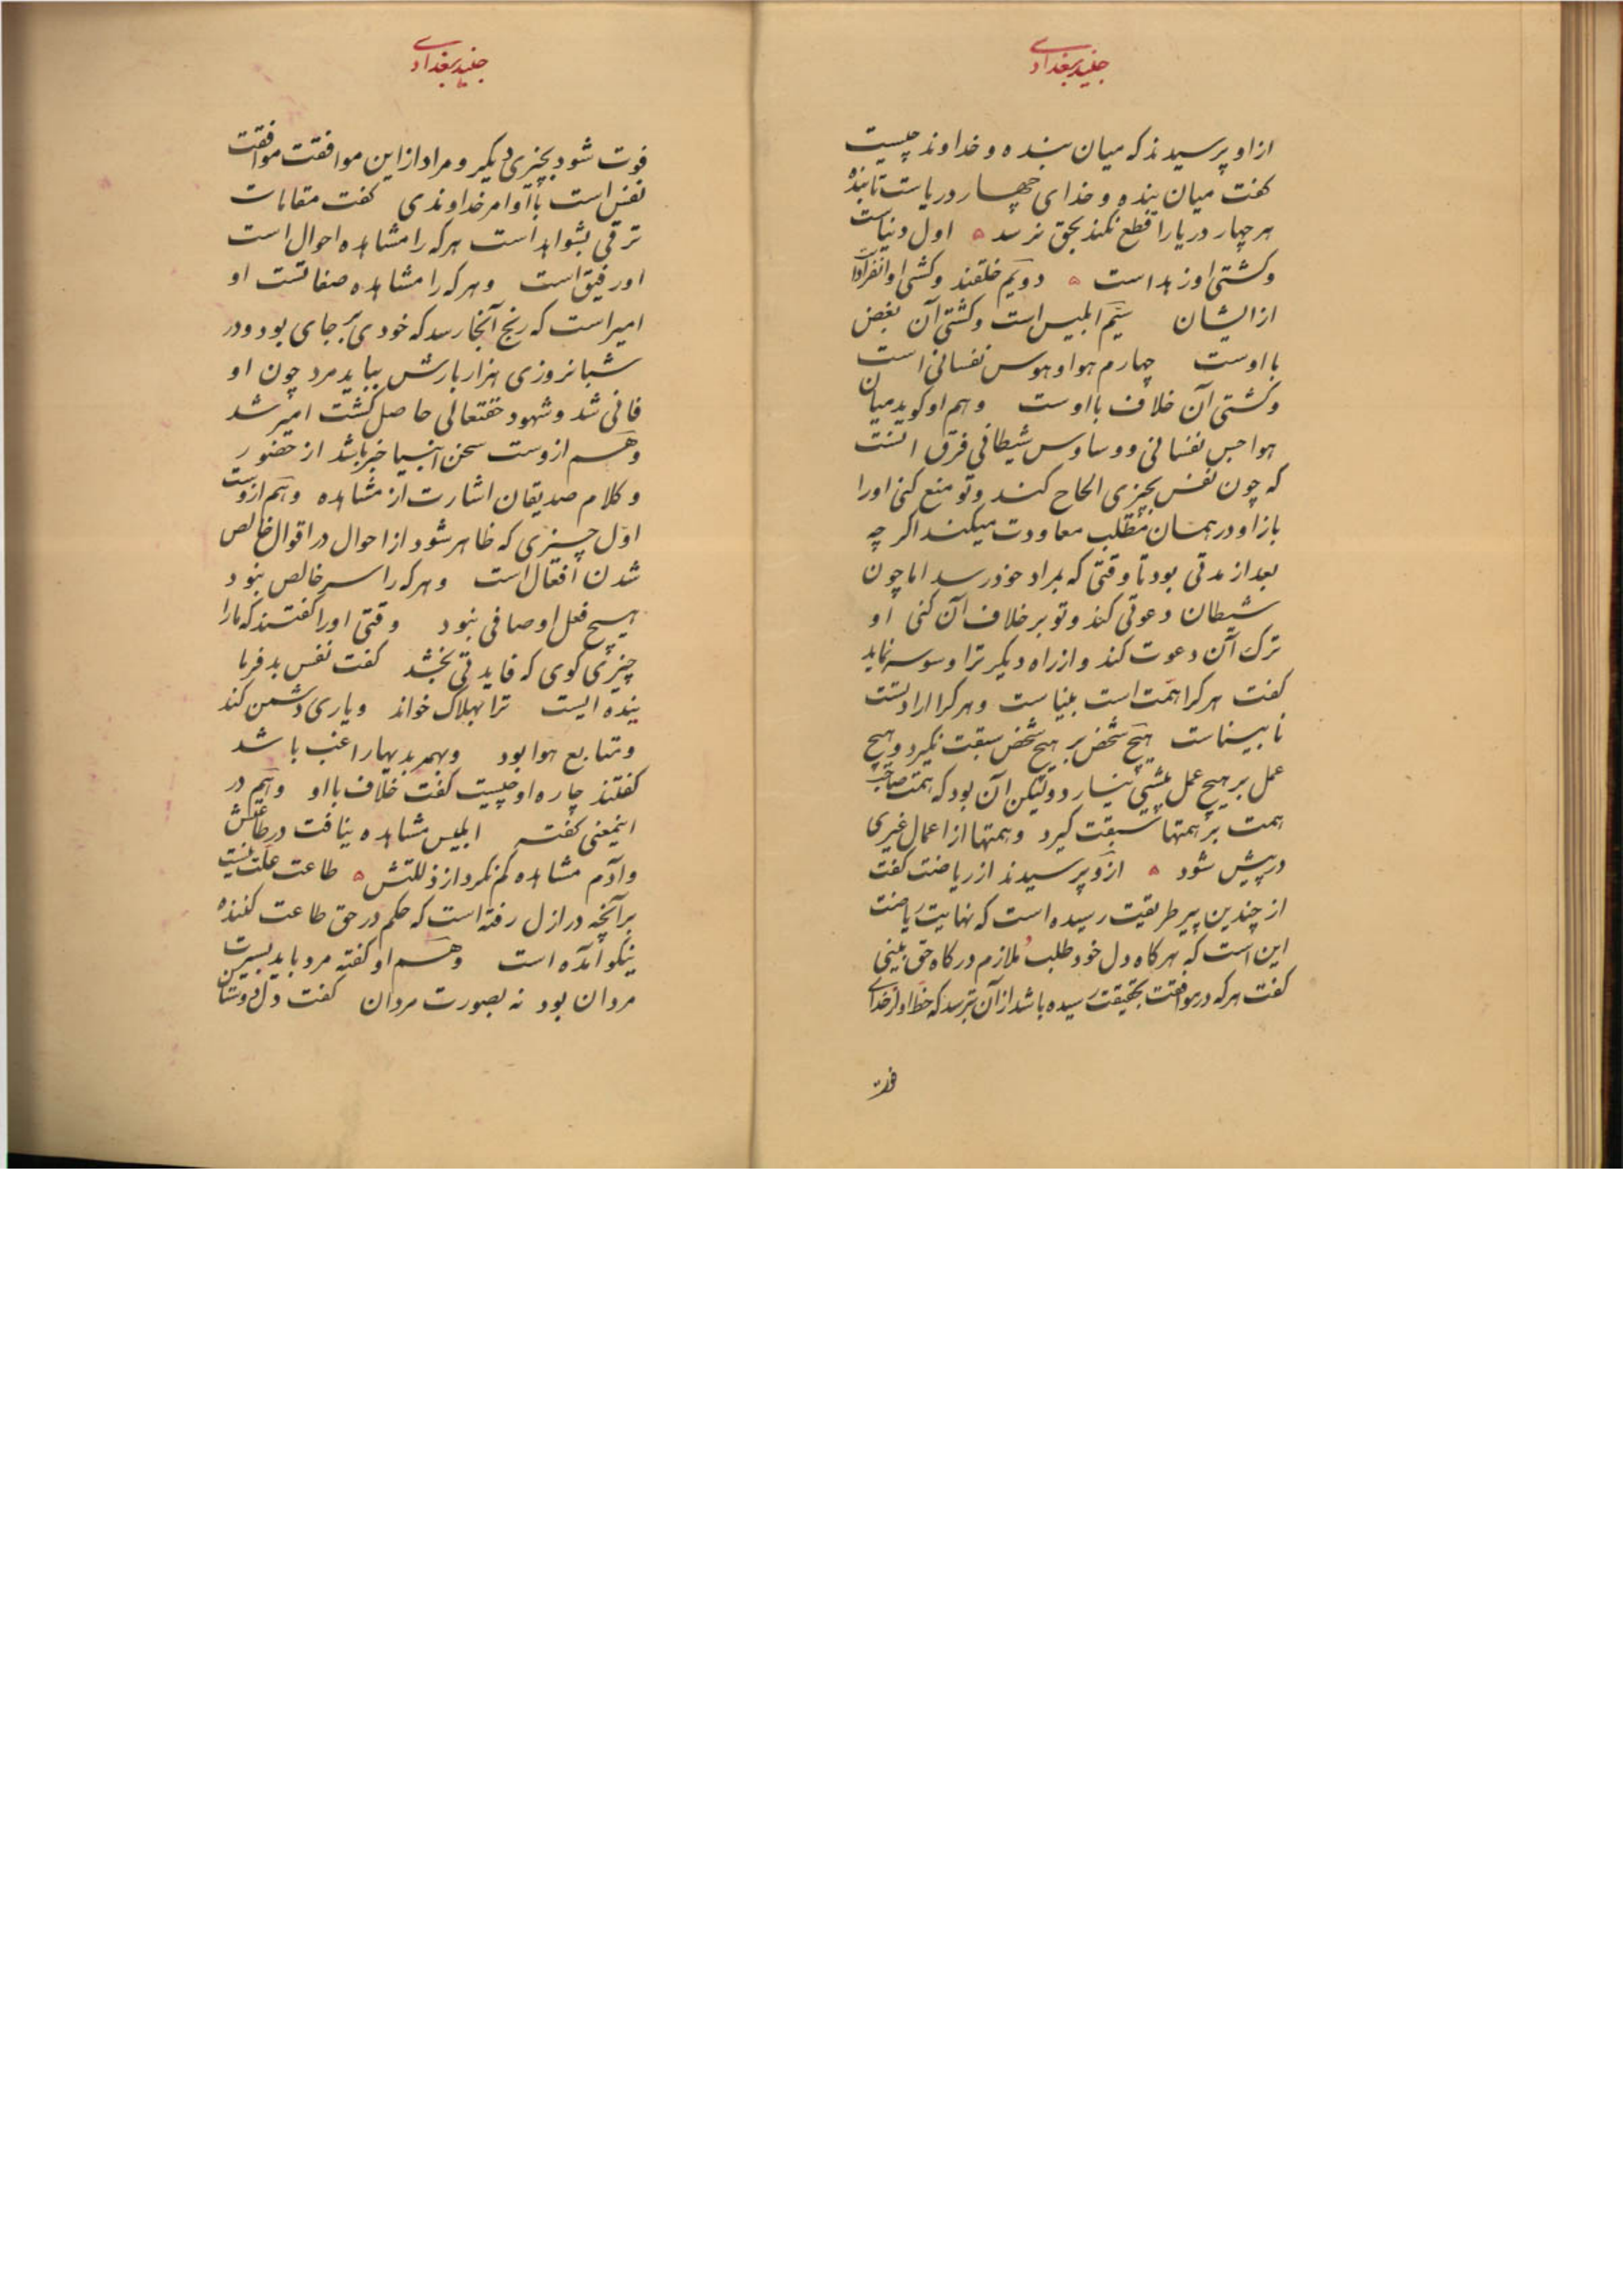 جنید بغدادی
از او پرسیدند که میان بنده و خداوند چیست
کفت میان بنده و خدای چهار دریاست تا بنده
هر چهار دریا را قطع نکند بحق نرسد ه اول دنیاست
وکشتی او زهد است ه دویم خلقند وکشتی او انفراد
از ایشان سیّم ابلیس است وکشتی آن بغض
با اوست چهارم هوا وهوس نفسانی است
وکشتی آن خلاف با اوست وهم او کوید میان
هواجس نفسانی ووساوس شیطانی فرق انست
که چون نفس بچیزی الحاح کند وتو منع کنی او را
باز او در همان مطلب معاودت میکند اکر چه
بعد از مدتی بود تا وقتی که بمراد خود رسد اما چون
شیطان دعوتی کند وتو بر خلاف آن کنی او
ترک آن دعوت کند و از راه دیکر ترا وسوسه نماید
کفت هر کرا همّت است بیناست وهر کرا ارادتست
نابیناست هیچ شخص بر هیچ شخص سبقت نکیرد وهیچ
عمل بر هیچ عمل پیشی نیارد ولیکن آن بود که همت صاحب
همت بر همتها سبقت کیرد وهمتها از اعمال غیری
در پیش شود ه ازو پرسیدند از ریاضت کفت
از چندین پیر طریقت رسیده است که نهایت ریاضت
این است که هر کاه دل خود طلب ملازم درکاه حق بینی
کفت هر که در موافقت بحقیقت رسیده باشد از آن بترسد که حظ او از خدای
فوت
جنید بغدادی
فوت شود بچیزی دیکر ومراد از این موافقت موافقت
نفس است با اوامر خداوندی کفت مقامات
ترقی بشواهد است هر که را مشاهده احوال است
او رفیق است وهر که را مشاهده صفاتست او
امیر است که رنج آنجا رسد که خودی بر جای بود ودر
شبانروزی هزار بارش بباید مرد چون او
فانی شد وشهود حقتعالی حاصل کشت امیر شد
وهم ازوست سخن انبیا خبر باشد از حضور
وکلام صدیقان اشارت از مشاهده وهم ازوست
اوّل چیزی که ظاهر شود از احوال در اقوال خالص
شدن افعال است وهر که را سر خالص نبود
هیچ فعل او صافی نبود وقتی او را کفتند که ما را
چیزی کوی که فایدتی بخشد کفت نفس بد فرما
ینده ایست ترا بهلاک خواند ویاری دشمن کند
ومتابع هوا بود وبهمه بدیها راغب باشد
کفتند چاره او چیست کفت خلاف با او وهم در
اینمعنی کفته ابلیس مشاهده نیافت در طاعتش
وآدم مشاهده کم نکرد از ذلتش ه طاعت علت نیست
بر آنچه در ازل رفته است که حکم در حق طاعت کننده
نیکو آمده است وهم او کفته مرد باید بسیرت
مردان بود نه بصورت مردان کفت دل دوستان